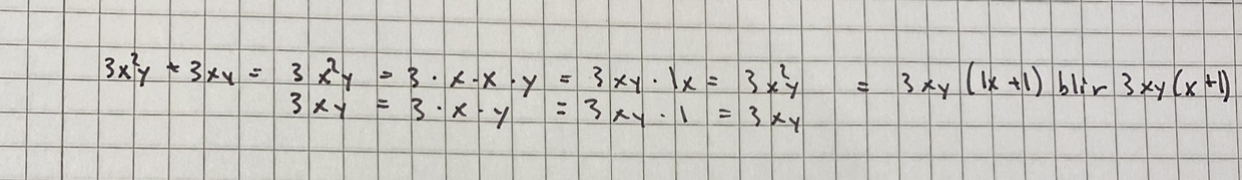 3x²y + 3xy = 3x²y = 3 · x · x · y = 3xy · 1x = 3x²y = 3xy (1x + 1) blir 3xy(x+1)
3xy = 3 · x · y = 3xy · 1 = 3xy